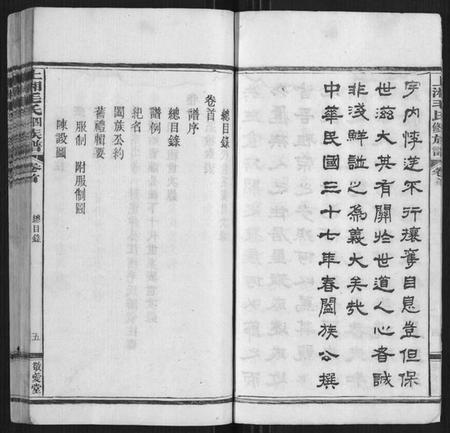 上湘毛氏四修族譜 卷首
宇内悖逆不行攘奪自息豈但保
世滋大其有關於世道人心者誠
非淺鮮誼之為義大矣哉
中華民國三十七年春闔族公撰
總目錄
卷首
譜序
總目錄
譜例
紀名
闔族公約
著禮輯要
服制 附服制圖
陳設圖
上湘毛氏四修族譜 卷首 總目錄 五 敬愛堂